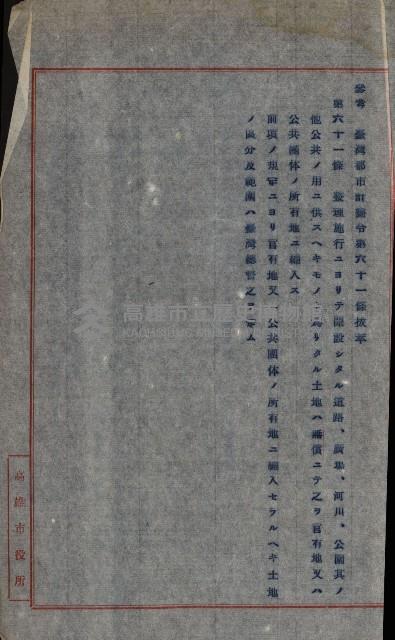 參考 臺灣都市計畫令第六十一條拔萃
第六十一條 整理施行ニヨリテ開設シタル道路、廣場、河川、公園其ノ
他公共ノ用ニ供スヘキモノ為リタル土地ハ無償ニテ之ヲ官有地又ハ
公共團体ノ所有地ニ編入ス
前項ノ規定ニヨリ官有地又 公共團体ノ所有地ニ編入セラルヘキ土地
ノ區分及範圍ハ臺灣總督之 ム
高雄市役所
高雄市立歷史博物館
KAOHSIUNG MUSEUM OF HISTORY